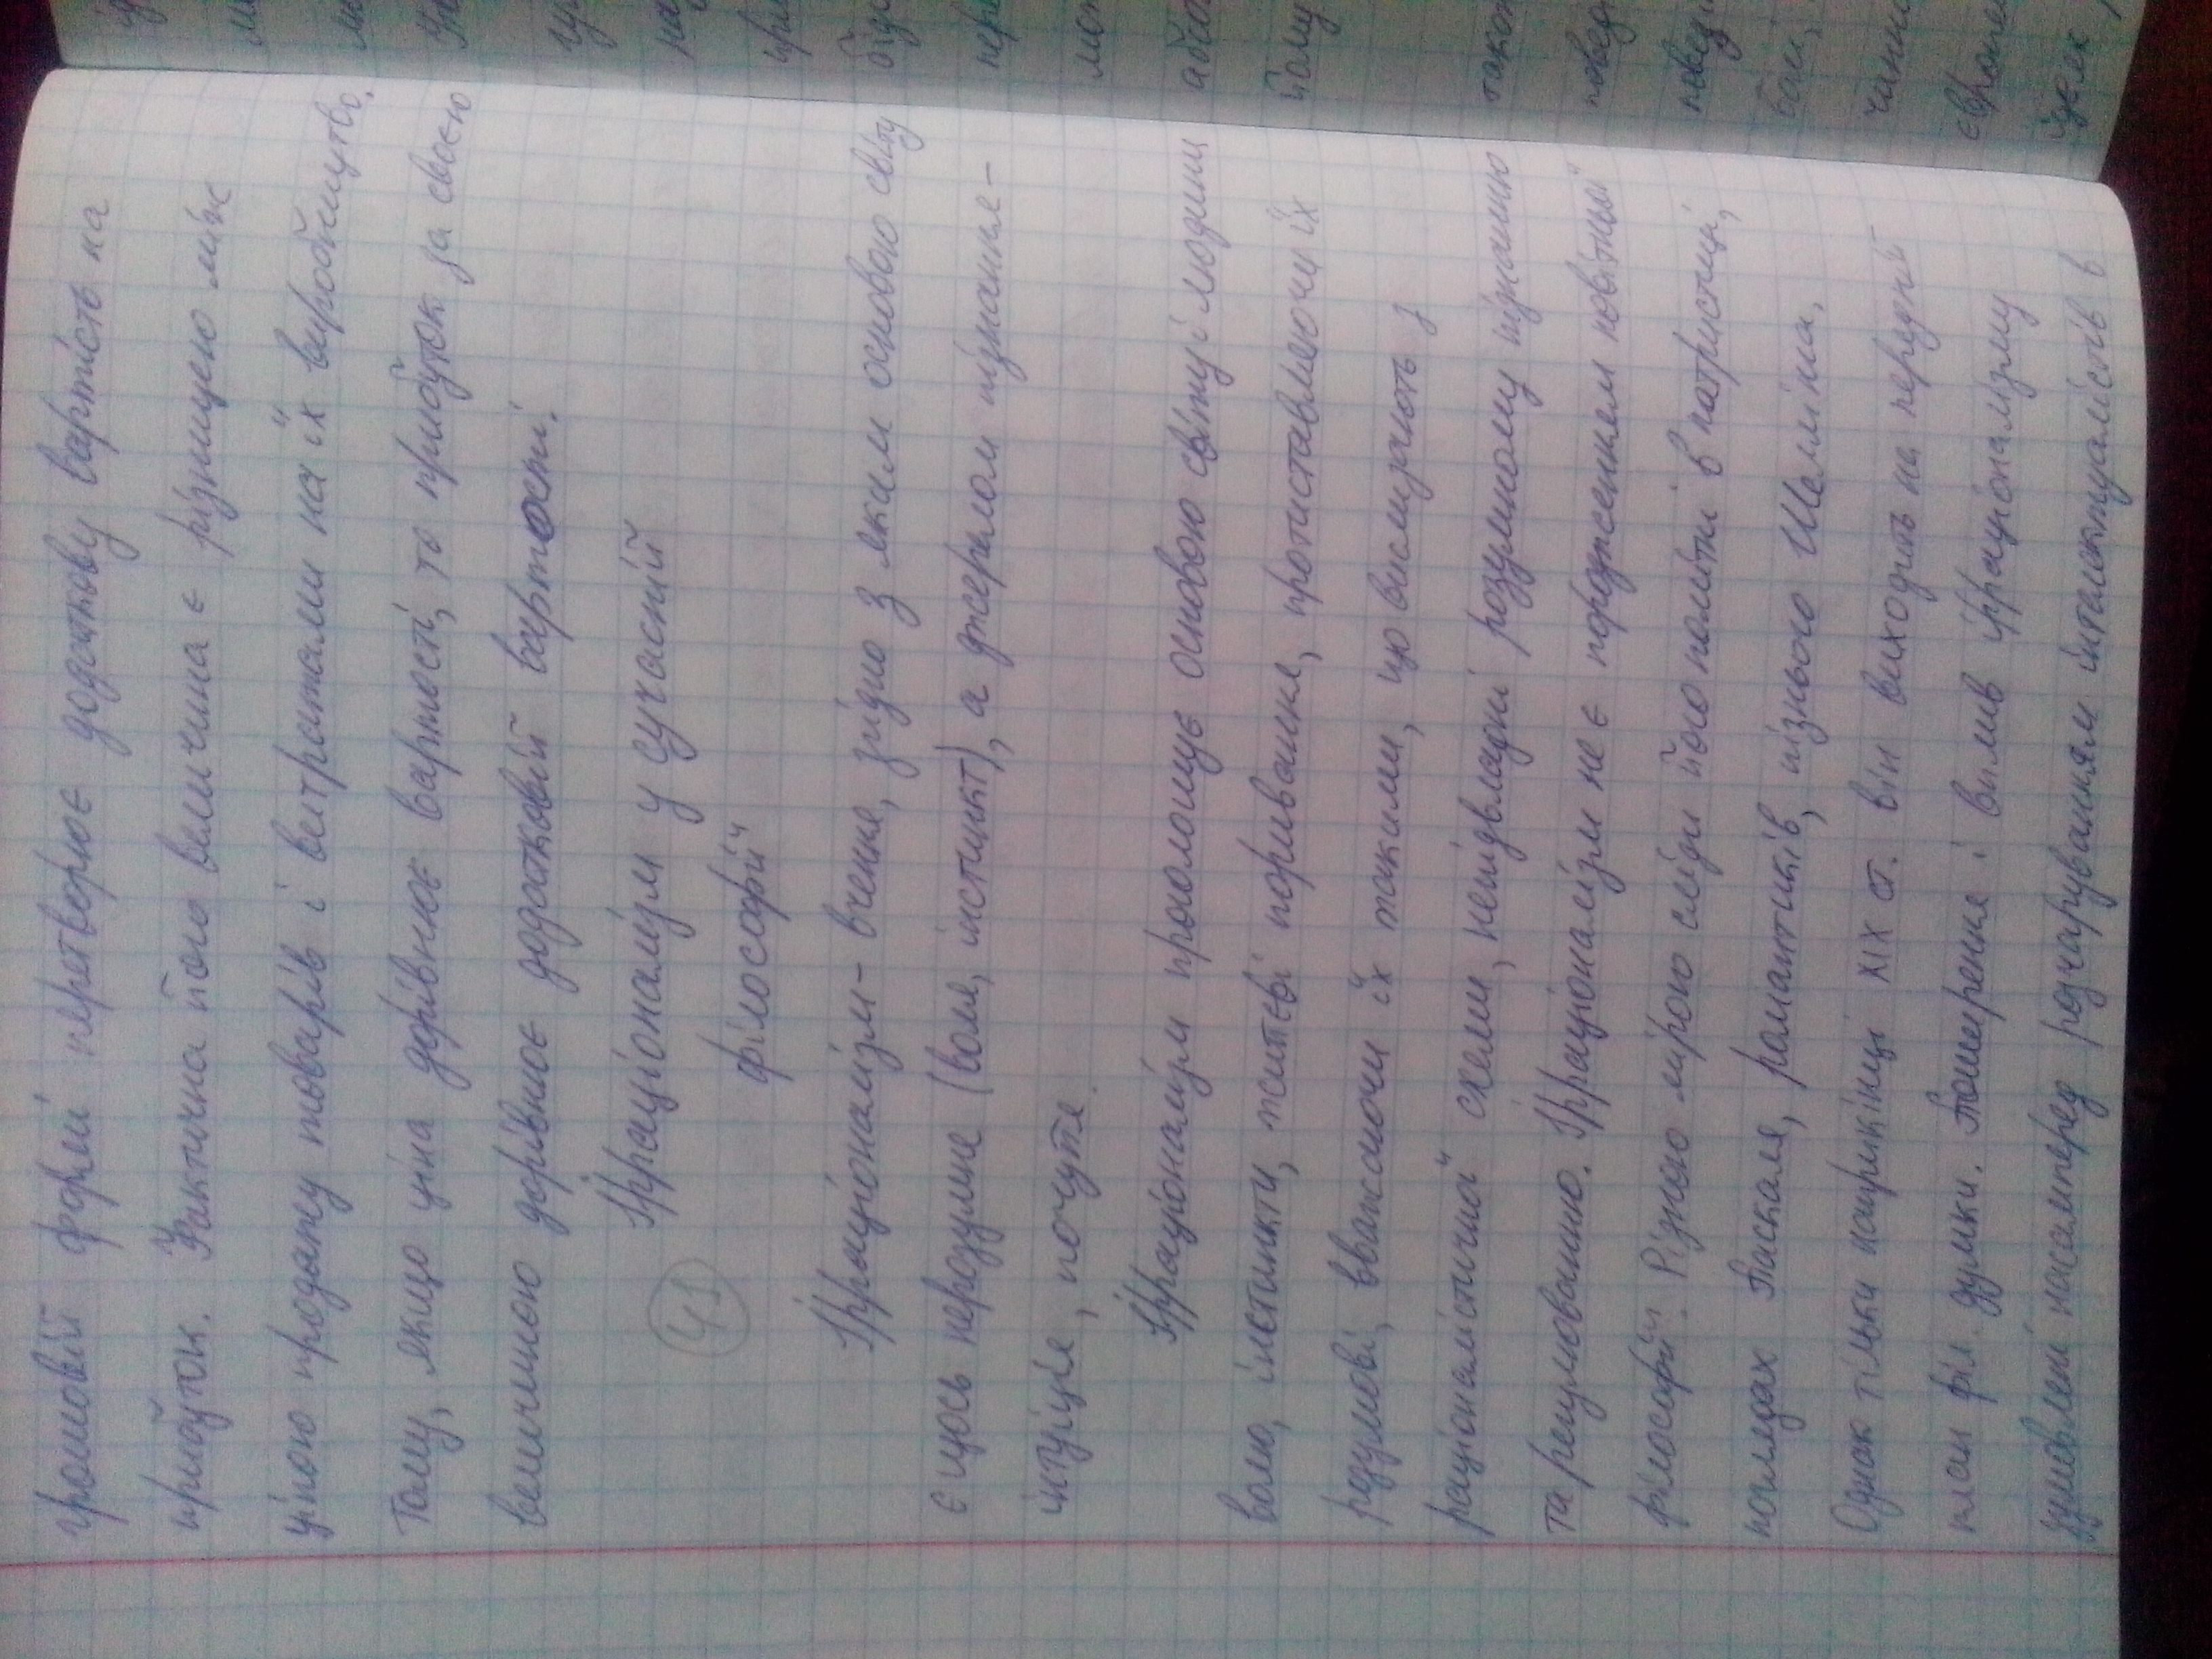 грошовій формі перетворює додаткову вартість на
прибуток. Фактична його величина є різницею між
ціною продажу товарів і витратами на їх виробництво.
Тому, якщо ціна дорівнює вартості, то прибуток за своєю
величиною дорівнює додатковій вартості.
Ірраціоналізм у сучасній
41
філософії
Ірраціоналізм – вчення, згідно з яким основою світу
є щось нерозумне (воля, інстинкт), а джерелом пізнання –
інтуїція, почуття.
Ірраціоналізм проголошує основою світу і людини
волю, інстинкти, життєві поривання, протиставляючи їх
розумові, вважаючи їх такими, що вислизають з
раціоналістичної схеми, непідвладні розумному пізнанню
та регулюванню. Ірраціоналізм не є породженням новітньої
філософії. Різною мірою сліди його помітні в патристиці,
поглядах Паскаля, романтиків, пізнього Шеллінга.
Однак тільки наприкінці ХІХ ст. він виходить на передній
план філ. думки. Поширення і вплив ірраціоналізму
зумовлені насамперед розчаруванням інтелектуалістів в